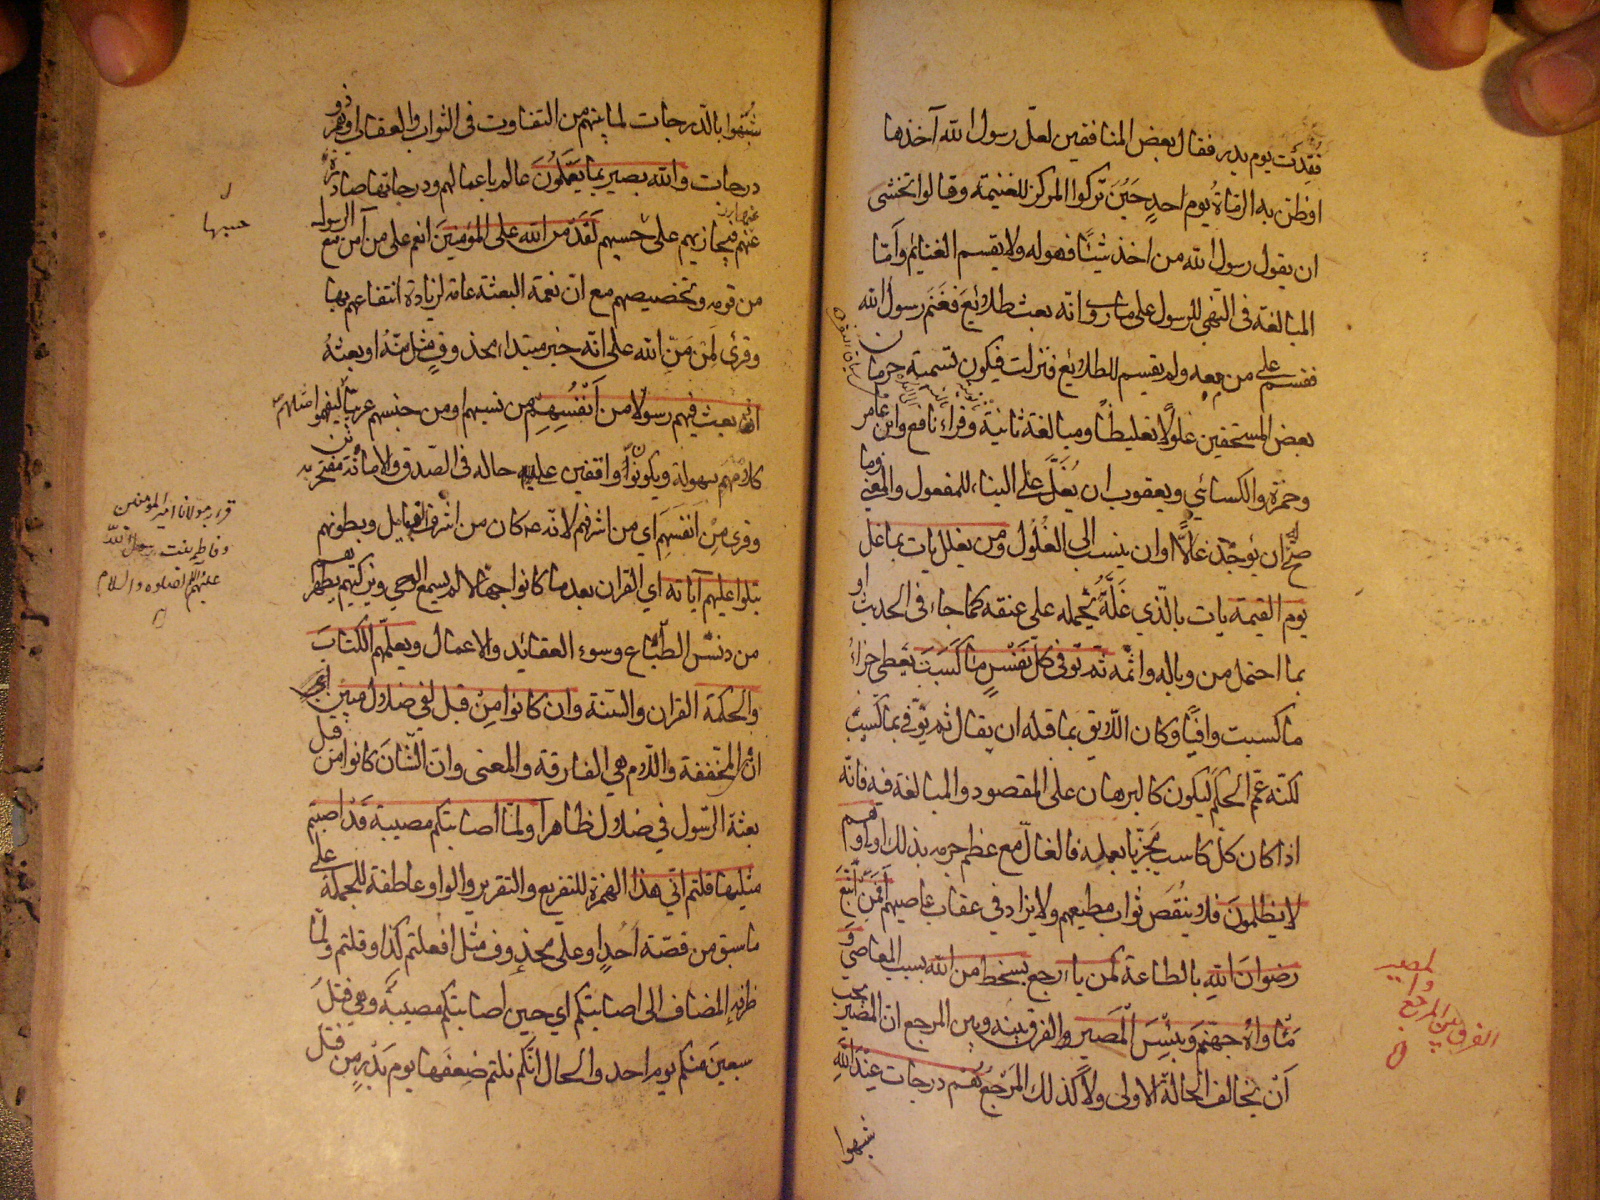 فقدت يوم بدر فقال بعض المنافقين لعلّ رسول الله آخذها
او ظن به الرماة يوم احد حين تركوا المركز للغنيمة وقالوا نخشى
ان يقول رسول الله من اخذ شيئا فهو له ولا يقسم الغنائم وأمّا
المبالغة في النهي للرسول على ما روي انه بعث طلائع فغنم رسول الله
فقسم على من معه ولم يقسم للطلائع فنزلت فيكون تسمية حرمان
بعض المستحقين غلولا تغليظا ومبالغة ثانية وقراء نافع وابن عامر
وحمزة والكسائي ويعقوب ان يُغَلّ على البناء للمفعول والمعنى وما
صحّ له ان يوجد غالّا او ان ينسب الى الغلول ومن يغلل يات بما غلّ
يوم القيمة يات بالّذي غلّه يحمله على عنقه كما جاء في الحديث او
بما احتمل من وباله واثمه ثم توفى كل نفس ما كسبت يعطى جزاء
ما كسبت وافيا وكان اللايق بما قبله ان يقال ثم يوفى بما كسبت
لكنه عمّ الحكم ليكون كالبرهان على المقصود والمبالغة فيه فانه
اذا كان كلّ كاسب مجزيا بعمله فالغالّ مع عظم جرمه بذلك اولى وهم
لا يظلمون فلا ينقص ثواب مطيعهم ولا يزاد في عقاب عاصيهم أفمن اتبع
رضوان الله بالطاعة كمن باء رجع بسخط من الله بسبب المعاصي و
مأواه جهنم وبئس المصير والفرق بينه وبين المرجع ان المصير يجب
أن يخالف الحالة الاولى ولا كذلك المرجع هم درجات عند الله
شبهوا
المصير
والمرجع
الفرق بين
شبهوا بالدرجات لما بينهم من التفاوت في الثواب والعقاب او هم ذوو
درجات والله بصير بما يعملون عالم باعمالهم ودرجاتها صادرة
عنهم فيجازيهم على حسبها لقد من الله على المؤمنين انعم على من آمن مع الرسول
من قومه وتخصيصهم مع ان نعمة البعثة عامة لزيادة انتفاعهم بها
وقرئ لمن منّ الله على انّه خبر مبتداء محذوف مثل منّه او بعثه
اذ بعث فيهم رسولا من أنفسهم من نسبهم او من جنسهم عربيا ليفهموا
كلامهم بسهولة ويكونوا واقفين على حاله في الصدق والامانة مفتخرين به
وقرئ من انفسهم اي من اشرفهم لانه عم كان من اشرف القبايل وبطونهم
يتلوا عليهم آياته اي القران بعد ما كانوا جهالا لم يسمع الوحي ويزكيهم يطهرهم
من دنس الطباع وسوء العقائد والاعمال ويعلمهم الكتاب
والحكمة القران والسنة وان كانوا من قبل لفي ضلال مبين
ان هي المخففة واللام هي الفارقة والمعنى وان الشأن كانوا من قبل
بعثة الرسول في ضلال ظاهر أولما أصابتكم مصيبة قد اصبتم
مثليها قلتم انّى هذا الهمزة للتقريع والتقرير والواو عاطفة للجملة على
ما سبق من قصّة أُحُد او على محذوف مثل افعلتم كذا وقلتم ولمّا
ظرفه المضاف الى اصابتكم اي حين اصابتكم مصيبة وهي قتل
سبعين منكم يوم احد والحال انكم نلتم ضعفها يوم بدر من قتل
حسبها
قراءة مولانا امير المؤمنين
وفاطمة بنت رسول الله
عليهم الصلوة والسلام